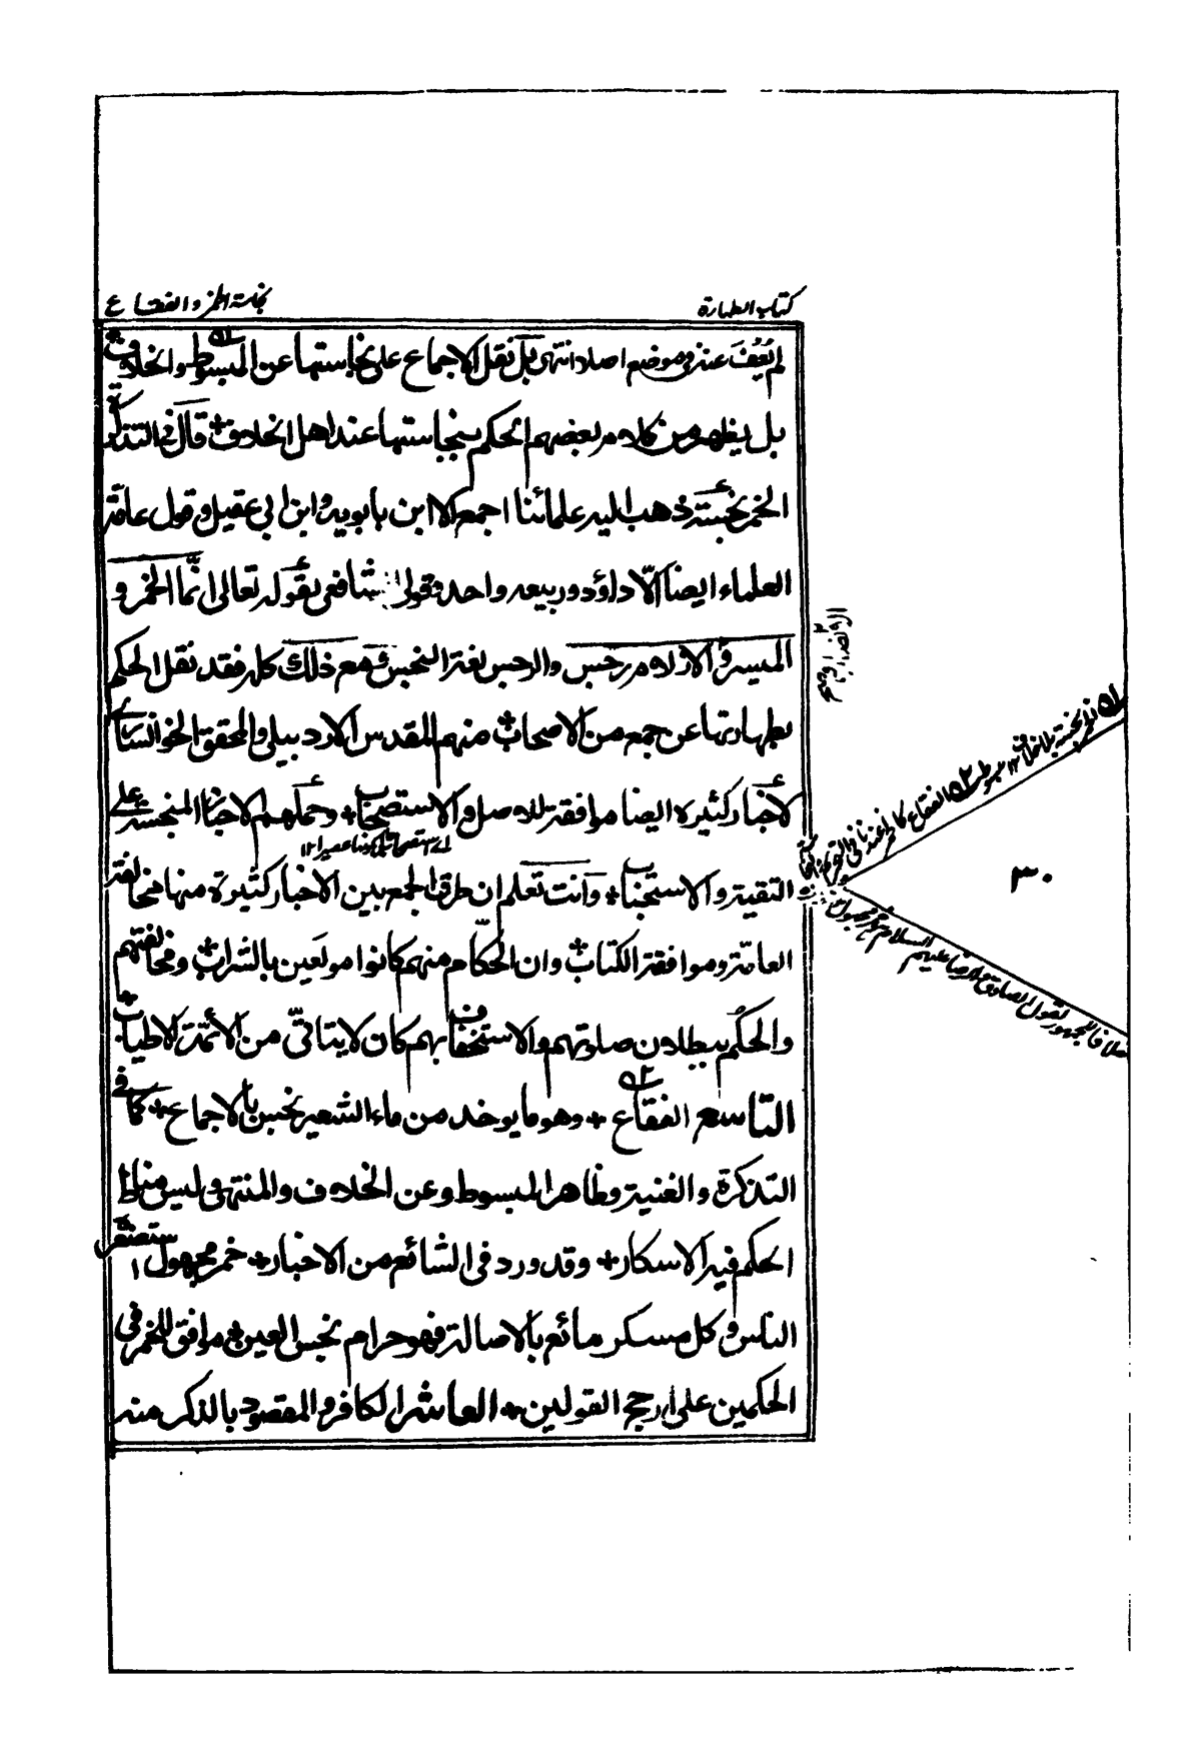 كتاب الطهارة
نجاسة الخمر والفقاع
لم يُعْفَ عنه في موضع اصلا انتهى بل نقل الاجماع على نجاستها عن المبسوط والخلاف
بل يظهر من كلام بعضهم الحكم بنجاستها عند اهل الخلاف قال في التذكرة
الخمر نجسة ذهب اليه علمائنا اجمع الا ابن بابويه وابن ابي عقيل وقول عامة
العلماء ايضا الّا داؤد وربيعه واحد قولي الشافعي بقوله تعالى انّما الخمر و
الميسر والازلام رجس والرجس لغة النجس ومع ذلك كله فقد نقل الحكم
بطهارتها عن جمع من الاصحاب منهم المقدس الاردبيلي والمحقق الخوانساري
لأخبار كثيرة ايضا موافقة للاصل والاستصحاب وحملهم الاخبار المنجسة على
التقية والاستحباب وأنت تعلم ان طرق الجمع بين الاخبار كثيرة منها مخالفة
العامة وموافقة الكتاب وان الحكّام منهم كانوا مولعين بالشراب ومخالفتهم
والحكم ببطلان صلوتهم والاستخفاف بهم كان لا يتاتّى من الأئمة الاطياب
التاسع الفقاع وهو ما يوخذ من ماء الشعير نجس بالاجماع كما في
التذكرة والغنية وظاهر المبسوط وعن الخلاف والمنتهى وليس مناط
الحكم فيه الاسكار وقد ورد في الشائع من الاخبار خمر مجهول استصغره
الناس وكل مسكر مائع بالاصالة فهو حرام نجس العين موافق للخمر في
الحكمين على ارجح القولين العاشر الكافر والمقصود بالذكر منه
الخمر نجسة بلا خلاف ١٢ مبسوط
٣٠
خلافا للجمهور لقول الصادق والرضا عليهم السلام خمر مجهول